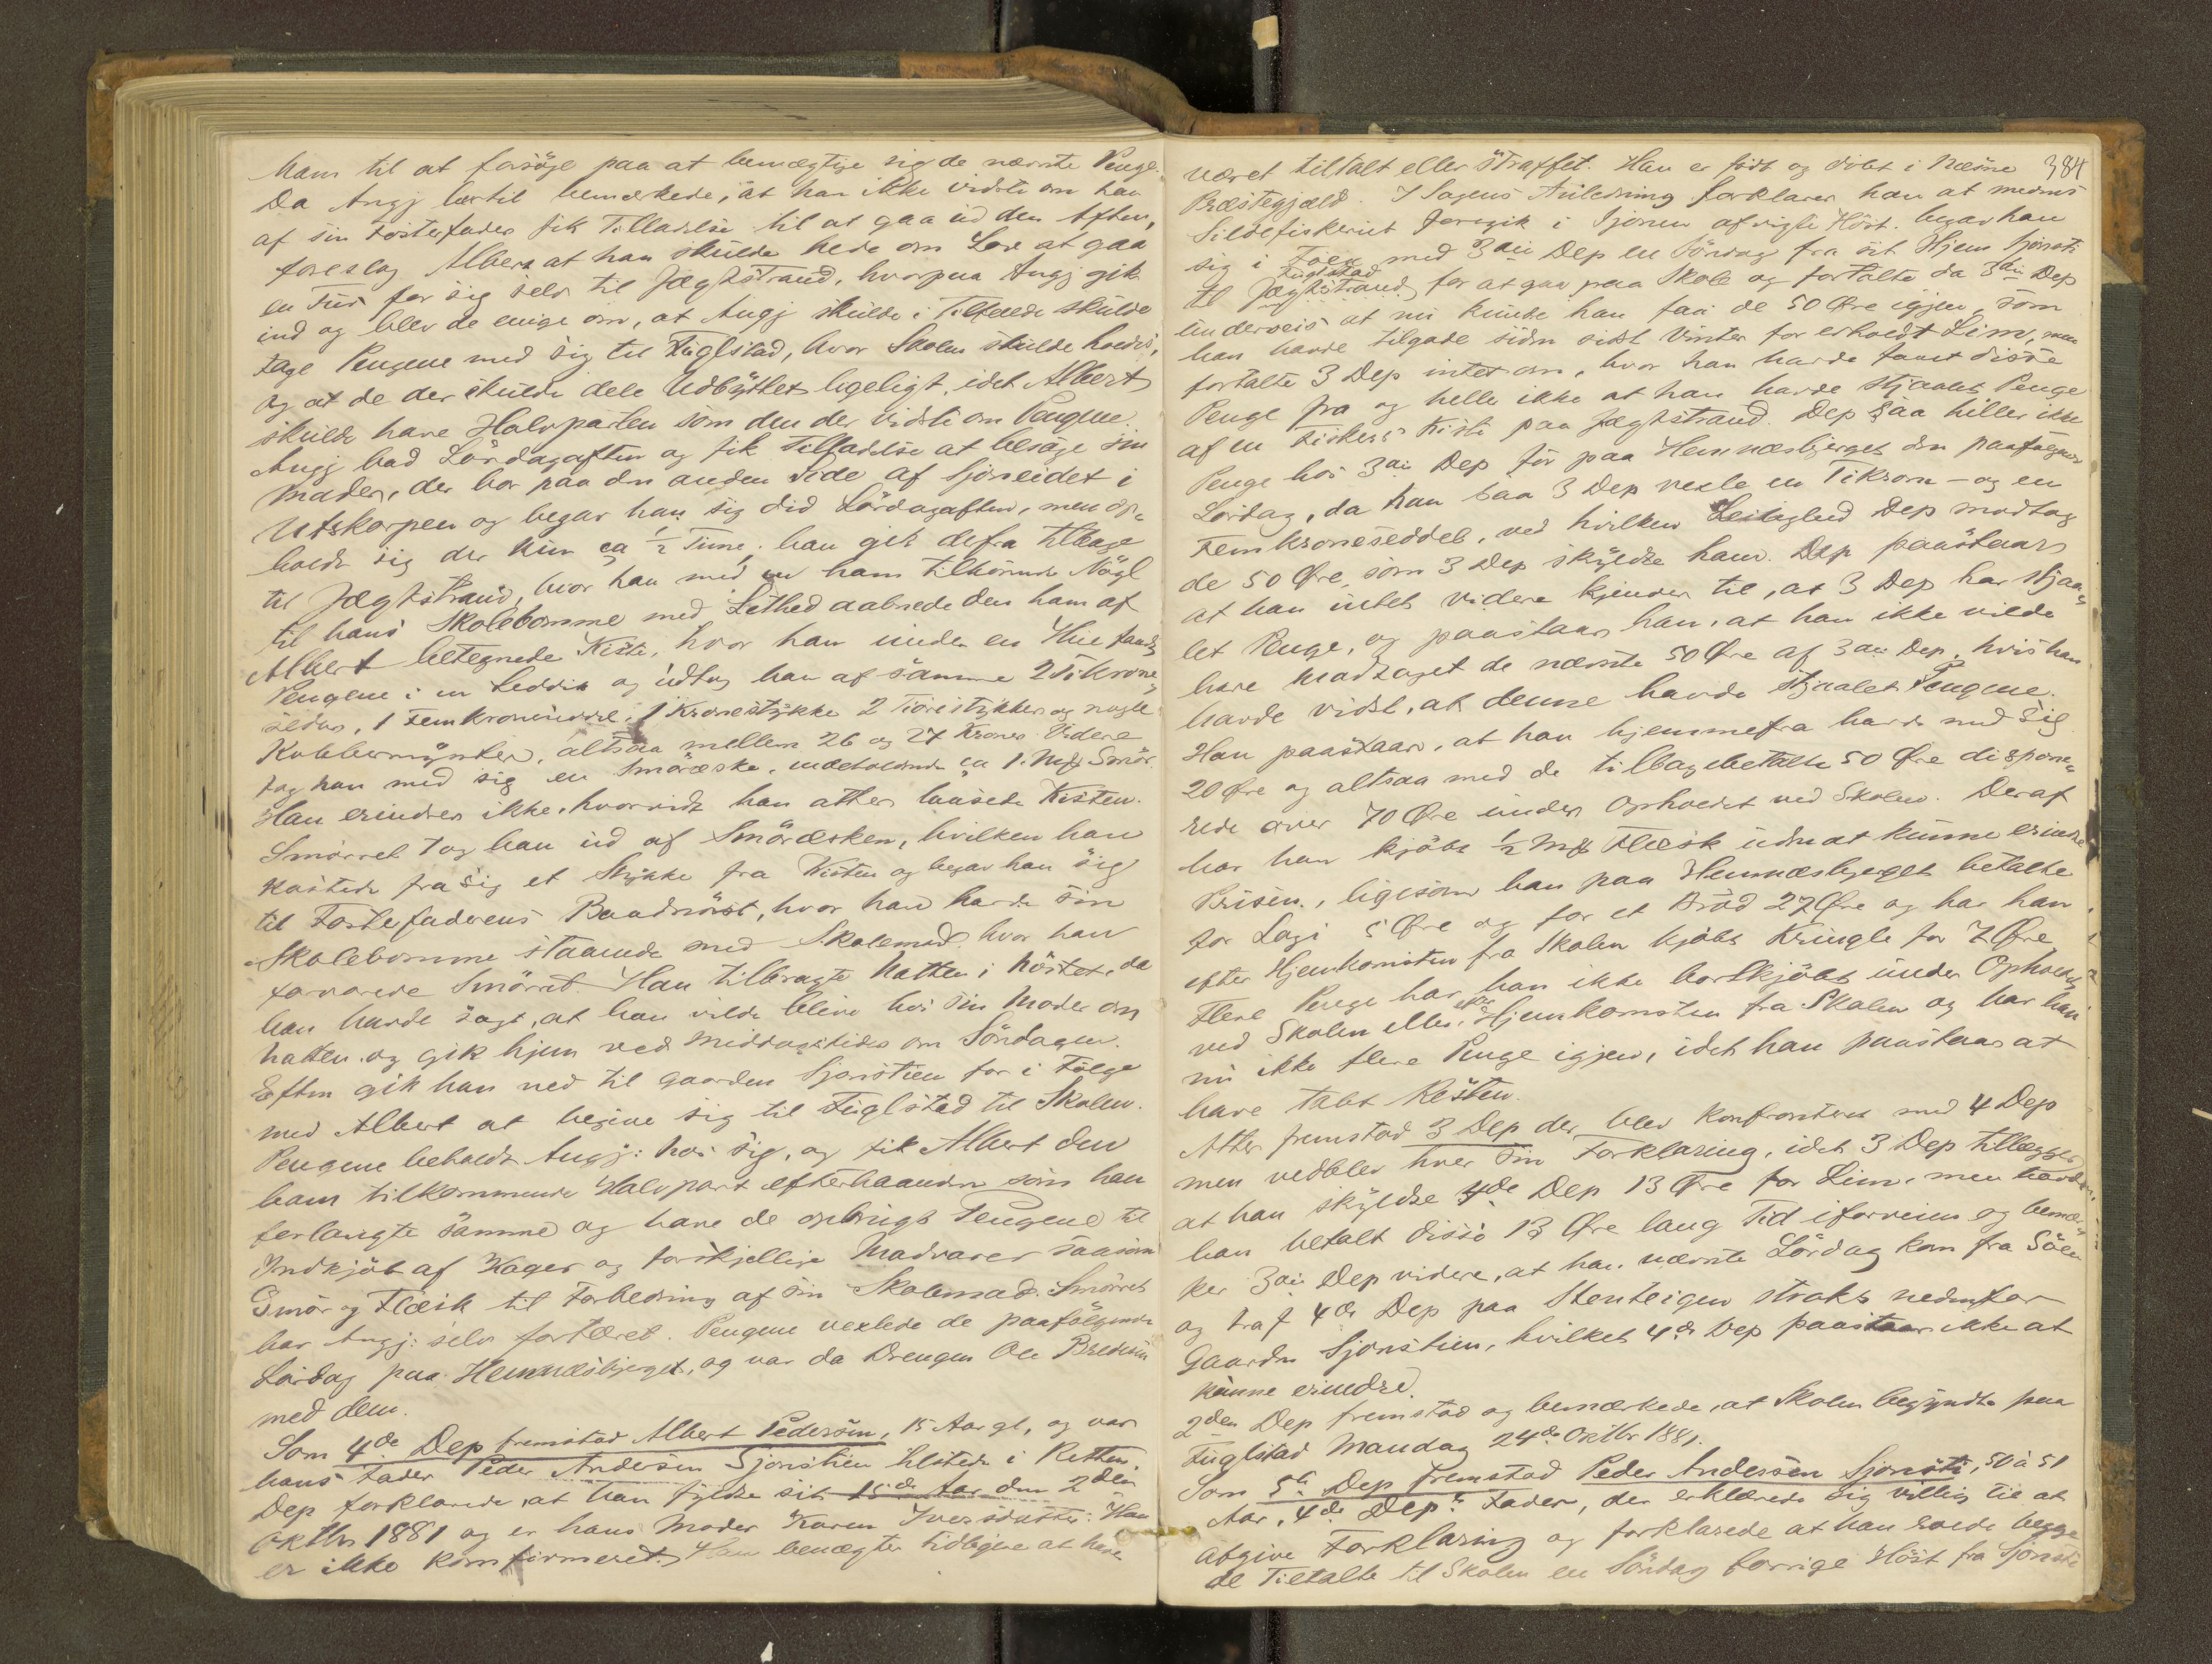 ham til at forsöge paa at bemægtige sig de nævnte Penge.
Da Angj hertil bemærkede, at han ikke vidste om han
af sin Fosterfader fik Tilladelse til at gaa ud den Aften,
foreslog Albert at han skulde bede om Lov at gaa
en Tur for sig selv til Jægtstrand, hvorpaa Angj gik
ind og blev de enige om, at Angj skulde i Tilfælde skulde
tage Pengene med sig til Fuglstad, hvor Skolen skulde holdes,
og at de der skulde dele Udbyttet ligeligt, idet Albert
skulde have Halvparten som den der vidste om Pengene.
Angj bad Lördagaften og fik Tilladelse at besöge sin
Moder, der bor paa den anden Side af Sjoneidet i
Utskarpen og begav han sig did Lördagaften, men op„
holdt sig der kun ca ½ Time; han gik derfra tilbage
til Jægtstrand, hvor han med en ham tilhörende Nögl
til hans Skolebomme med Lethed aabnede den ham af
Albert betegnede Kiste, hvor han under en Hue fandt
Pengene i en Leddik og udtog han af samme 2 Tikrone„
sedler, 1 Femkroneseddel, 1 Kronestykke 2 Tiörestykker og nogle
Kobbermynter, altsaa mellem 26 og 27 Kroner. Videre
tog han med sig en Smöræske, indeholdende ca 1. Mk Smör.
Han erindrer ikke, hvorvidt han atter laasede Kisten.
Smörret tog han ud af Smöræsken, hvilken han
kastede fra sig et Stykke fra Kisten og begav han sig
til Fosterfaderens Baadnöst, hvor han havde sin
Skolebomme staaende med Skolemad, hvor han
forvarede Smörret. Han tilbragte Natten i Nöstet, da
han havde sagt, at han vilde blive hos sin Moder om
Natten og gik hjem ved Middagstider om Söndagen.
Eftm gik han ned til Gaarden Sjonstien for i Fölge
med Albert at begive sig til Fuglstad til Skolen.
Pengene beholdt Angj: hos sig, og fik Albert den
ham tilkommende Halvpart efterhaanden som han
forlangte samme og have de opbrugt Pengene til
Indkjöb af Kager og forskjellige Madvarer saasom
Smör og Flæsk til Forbedring af sin Skolemad. Smörret
har Angj: selv fortæret. Pengene vexlede de paafölgende
Lördag paa Hemnæsbjerget, og var da Drengen Ole Bredesen
med dem.
Som 4de Dep fremstod Albert Pedersen, 15 Aar gl, og var
hans Fader Peder Andersen Sjonstien tilstede i Retten.
Dep forklarede, at han fyldte sit 15de Aar den 2den
Oktbr 1881 og er hans Moder Karen Iversdatter. Han
er ikke konfirmeret. Han benægter tidligere at have
384
været tiltalt eller straffet. Han er födt og döbt i Næsne
Præstegjæld. I Sagens Anledning forklarer han at medens
Sildefiskeriet foregik i Sjonen afvigte Höst, begav han
sig i Fölge med 3die Dep en Söndag fra sit Hjem Sjonsti
Fuglstad
til Jægtstrand for at gaa paa Skole og fortalte da 3die Dep
underveis at nu kunde han faa de 50 Øre igjen, som
han havde tilgode siden sidst Vinter for erholdt Lim, men
fortalte 3 Dep intet om, hvor han havde faaet disse
Penge fra og heller ikke at han havde stjaalet Penge
af en Fiskers Kiste paa Jægtstrand. Dep saa heller ikke
Penge hos 3die Dep för paa Hemnæsbjerget den paafölgende
Lördag, da han saa 3 Dep vexle en Tikrone- og en
Femkroneseddel, ved hvilken Leilighed Dep modtog
de 50 Øre, som 3 Dep skyldte ham. Dep paastaar
at han intet videre kjender til, at 3 Dep har stjaa„
let Penge, og paastaar han, at han ikke vilde
have modtaget de nævnte 50 Øre af 3die Dep, hvis han
havde vidst, at denne havde stjaalet Pengene.
Han paastaar, at han hjemmefra havde med sig
20 Øre og altsaa med de tilbagebetalte 50 Øre dispone„
rede over 70 Øre under Opholdet ved Skolen. Deraf
har han kjöbt ½ Mk Flæsk uden at kunne erindre
Prisen, ligesom han paa Hemnæsbjerget betalte
for Logi 5 Øre og for et Bröd 27 Øre og har han
efter Hjemkomsten fra Skolen kjöbt Kringle for 7 Øre
Flere Penge har han ikke bortkjöbt under Opholdet
efter
ved Skolen eller Hjemkomsten fra Skolen og har han
nu ikke flere Penge igjen, idet han paastaar at
have tabt Resten.
Atter fremstod 3 Dep der blev konfronteret med 4 Dep
men vedblev hver sin Forklaring, idet 3 Dep tillægger
at han skyldte 4de Dep 13 Øre for Lim, men havde
han betalt disse 13 Øre lang Tid iforveien og bemær„
ker 3die Dep videre, at han nævnte Lördag kom fra Söen
og traf 4de Dep paa Stenteigen straks nedenfor
Gaarden Sjonstien, hvilket 4de Dep paastaar ikke at
kunne erindre.
2den Dep fremstod og bemærkede, at Skolen begyndte paa
Fuglstad Mandag 24de Oktbr 1881.
Som 5te Dep fremstod Peder Andersen Sjonsti, 50 à 51
Aar, 4de Deps Fader, der erklærede sig villig til at
afgive Forklaring og forklarede at han roede begge
de Tiltalte til Skolen en Söndag forrige Höst fra Sjonsti